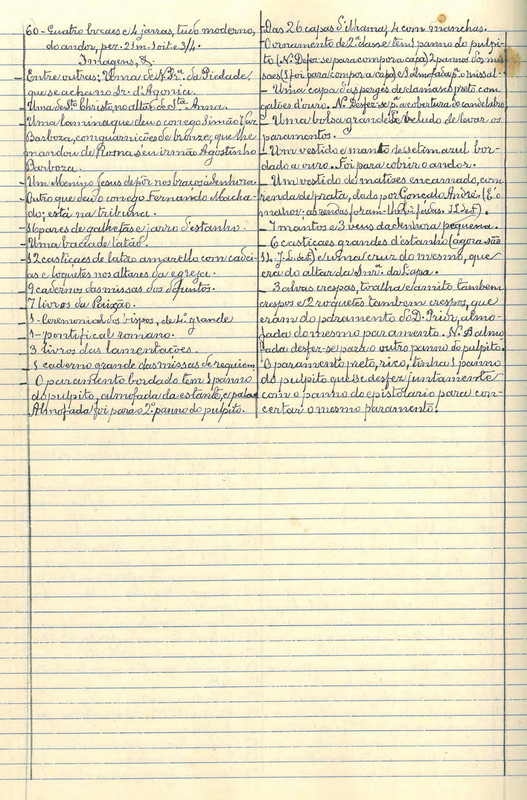 60-Quatro bocaes e 4 jarras, tudo moderno,
do andor, pez. 21 m. 1 oit. e 3/4.
Imagens, &.
Entre outras: Uma de N. Srª. da Piedade,
que se acha no Sr. d'Agonia.
Uma de Stº. Christo, no altar de Stª. Anna.
Uma lamina que deu o conego Simão Vaz
Barboza, com guarnicões de bronze, que lhe
mandou de Roma seu irmão Agostinho
Barboza.
-Um Menino Jesus de pôr nos braços á Senhora.
-Outro que deu o conego Fernando Macha-
do; está na tribuna.
-16 pares de galhetas e jarro d'estanho.
-Uma bacia de latão.
-12 castiçaes de latão amarello com cadei-
as e loquetes nos altares da egreja.
-9 cadernos das missas dos defuntos.
-7 livros da Paixão.
-1-Ceremonial dos bispos, de 4º grande
-1-pontifical romano.
-3 livros das lamentações.
-1 caderno grande das missas de requiem.
-O paramento bordado tem 1 panno
do pulpito, almofada da estante, e pala.
Almofada foi para o 2º panno do pulpito.
-Das 26 capas d'ilhama, 4 com manchas.
-O ornamento de 2ª classe tem 1 panno do pulpi-
to (N. Desfez-se para compor a capa) 2 pannos dos mis-
saes (1 foi para compor a capa) e 1 almofada pª o missal.
-Uma capa d'asperges de damasco preto com
galões d'ouro. N. Desfez-se pª. a cobertura do candelabro
-Uma bolsa grande de veludo de levar os
paramentos.
-Um vestido e manto de setim azul bor-
dado a ouro. Foi para cobrir o andor.
-Um vestido de matizes encarnado, com
renda de prata, dado por Gonçalo André. (É o
melhor: as rendas foram-lhe
-7 mantos e 3 veus da Senhora pequena.
-6 castiçaes grandes d'estanho (agora são
e uma cruz do mesmo, que
era do altar da Snrª. da Lapa.
-3 alvas crespas, toalha e amito tambem
crespos e 2 roquetes tambem crespos, que
eram do paramento do D. Prior, almo-
fada do mesmo paramento. N. A almo-
fada desfez-se para o outro panno do pulpito.
-O paramento preto, rico, tinha 1 panno
do pulpito que se desfez juntamente
com o panno do epistolario para con-
certar o mesmo paramento.